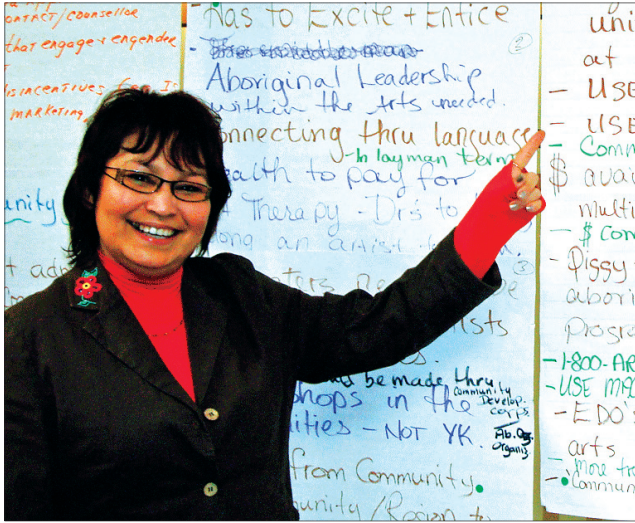 CONTACT/COUNSELLOR
that engage + engender
disincentives for Is
MARKETING
unity
- Has to Excite + Entice
Aboriginal Leadership
within the Arts needed.
onnecting thru language
- In layman term
ealth to pay for
Therapy - Dr's to
ong an artist
ters ne
ists
be made thru
Community
Develop.
corps
hops in the
ities - NOT YK.
Ab. Org.
Organis
from Community.
unity/Region to
uni
at
- USE
- USE
- Comm
$ avai
multi
- $ Com
- Piggy
abori
progr
- 1-800-AR
- USE MQ
- EDO's
arts
- More tra
- Commun